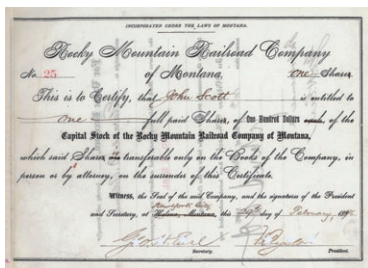 INCORPORATED UNDER THE LAWS OF MONTANA.
Rocky Mountain Railroad Company
No. 25 of Montana, one Share
This is to Certify, that John Scott is entitled to
one full paid Shares, of One Hundred Dollars each, of the
Capital Stock of the Rocky Mountain Railroad Company of Montana,
which said Shares are transferable only on the Books of the Company, in
person or by attorney, on the surrender of this Certificate.
Witness, the Seal of the said Company, and the signatures of the President
and Secretary, at Helena, Montana, this day of February, 189
New York City
Secretary. President.